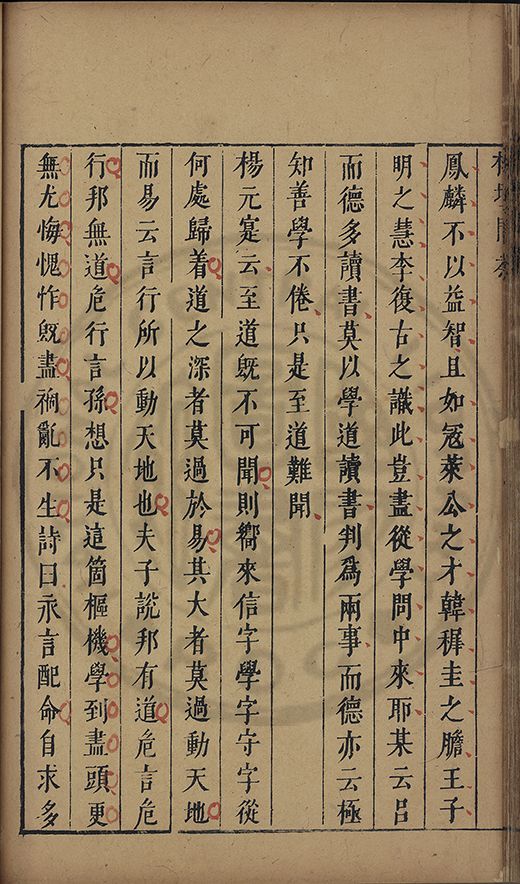 鳳麟不以益智且如宼萊公之才韓穉圭之膽王子
明之慧李復古之識此豈盡從學問中來耶某云呂
而德多讀書莫以學道讀書判爲兩事而德亦云極
知善學不倦只是至道難聞
楊元寔云至道旣不可聞則嚮來信字學字守字從
何處歸着道之深者莫過於易其大者莫過動天地
而易云言行所以動天地也夫子說邦有道危言危
行邦無道危行言孫想只是這箇樞機學到盡頭更
無尤悔愧怍旣盡禍亂不生詩曰永言配命自求多